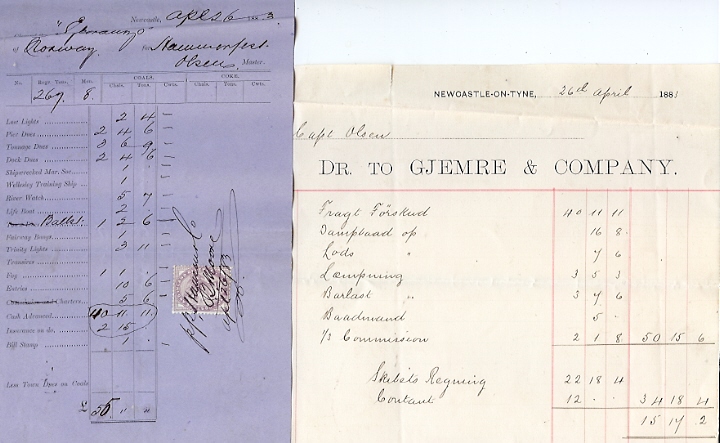 Newcastle, Apl 26 3
of Norway for Hammerfest
Olsen Master.
COALS. COKE.
No. Regr. Tons. Met. Chals. Tons. Cwts. Chals. Tons. Cwts.
267 8
Low Lights 2 4
Pier Dues 2 4 6
Tonnage Dues 8 6 9
Dock Dues 2 4 6
Shipwrecked Mar. Soc. 1
Wellesley Training Ship 1
River Watch 5 7
Life Boat 2
Ballast 1 2 6
Fairway Buoys 1
Trinity Lights 3 11
Trousers
Fog 1 1
Entries 10 6
Charters 5 6
Cash Advanced 40 11 11
Insurance on do. 2 15
Bill Stamp 1
Less Town Dues on Coals
£ 56
NEWCASTLE-ON-TYNE, 26th April 1883
Capt Olsen
DR. TO GJEMRE & COMPANY.
Fragt Förskud 40 11 11
Dampbaad op 16 8
Lods " 7 6
Læmpning 3 5 3
Barlast " 3 7 6
Baadmand 5
1/3 Commission 2 1 8 50 15 6
Skibets Regning 22 18 4
Contant 12 . . 34 18 4
15 17 2